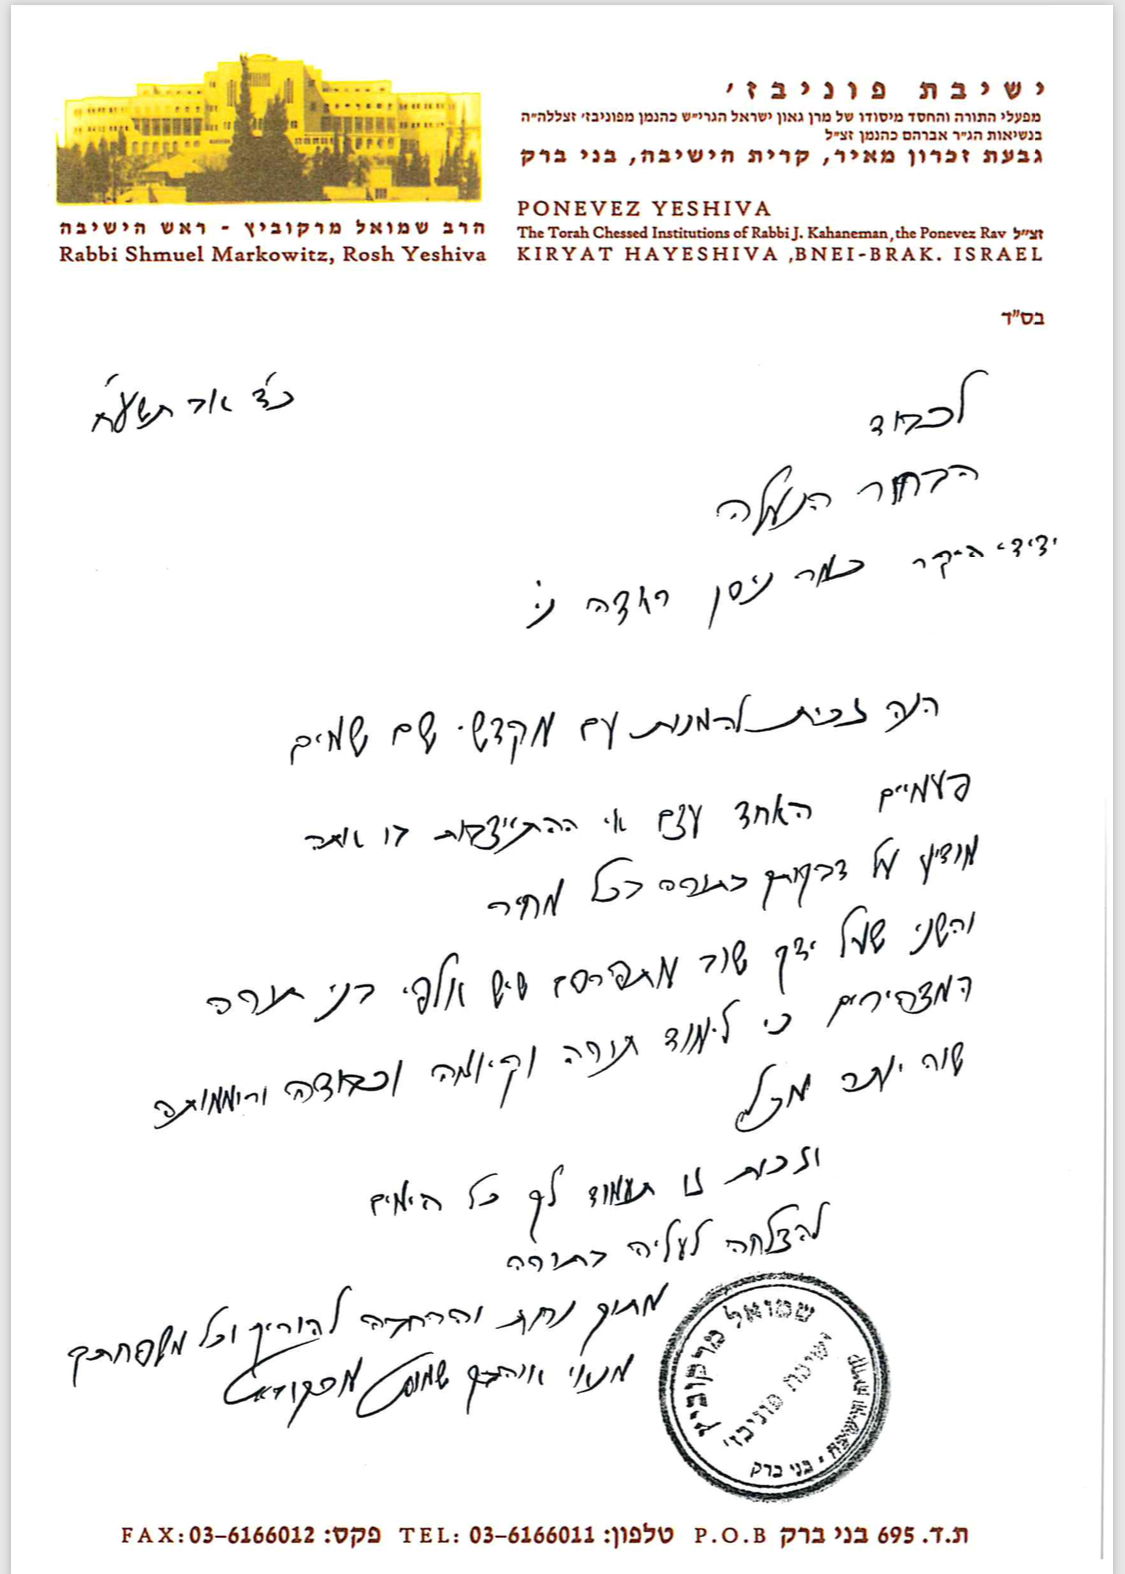 ישיבת פוניבז׳
מפעלי התורה והחסד מיסודו של מרן גאון ישראל הגרי״ש כהנמן מפוניבז׳ זצללה״ה
בנשיאות הג״ר אברהם כהנמן זצ״ל
גבעת זכרון מאיר, קרית הישיבה, בני ברק
PONEVEZ YESHIVA
The Torah Chessed Institutions of Rabbi J. Kahaneman, the Ponevez Rav זצ״ל
KIRYAT HAYESHIVA ,BNEI-BRAK. ISRAEL
הרב שמואל מרקוביץ - ראש הישיבה
Rabbi Shmuel Markowitz, Rosh Yeshiva
בס״ד
כ״ד אב תשע״ח
לכבוד
הבחור הנעלה
ידידי היקר כמר ניסן ני׳
הנה זכית להמנות עם מקדשי שם שמים
פעמיים האחד עצם אי ההתייצבות בו אתה
מודיע על דבקותך בתורה בכל מחיר
והשני שעל ידך שוב מתפרסם שיש אלפי בני תורה
המצהירים כי לימוד תורה וקיומה וכבודה ורוממותה
שוה יותר מכל
וזכות זו תעמוד לך כל הימים
להצלחה לעליה בתורה
מתוך נחת והרחבה להוריך וכל משפחתך
ממני אוהבך שמואל מרקוביץ
שמואל מרקוביץ
ישיבת פוניבז׳
ראש הישיבה • בני ברק
ת.ד. 695 בני ברק P.O.B טלפון: 03-6166011 :TEL פקס: 03-6166012 :FAX